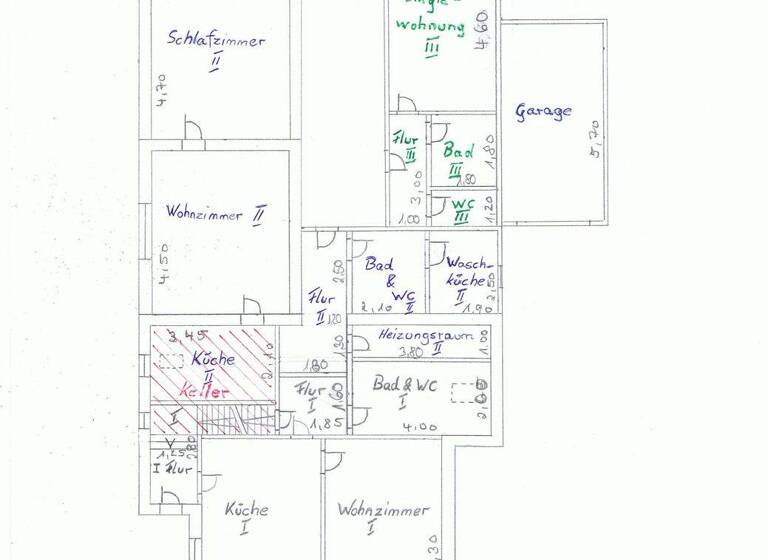 Single-
wohnung
III
4,60
Schlafzimmer
II
4,70
Garage
5,70
Flur
III
3,00
1,00
Bad
III
1,80
1,80
WC
III
1,20
Wohnzimmer II
4,50
Flur
II
2,50
1,20
1,30
1,80
Bad
&
WC
II
2,10
Wasch-
küche
II
2,50
1,90
3,45
Küche
II
2,10
Keller
I
Heizungsraum
II
3,80
1,00
Flur
I
1,60
1,85
Bad & WC
I
4,00
2,00
1,25
2,80
I Flur
Küche
I
Wohnzimmer
I
,30